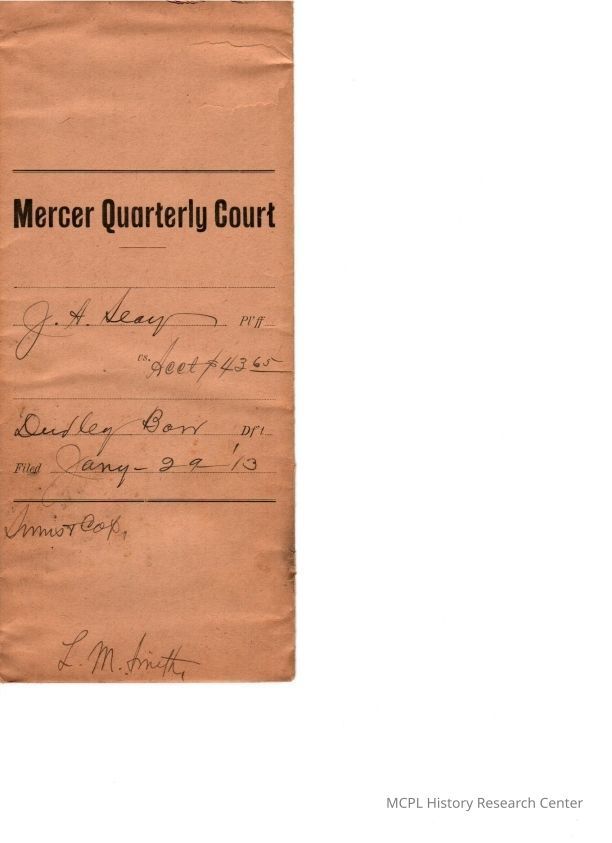 Mercer Quarterly Court
J. H. Seay Pl'ff
vs. Acct $43 65
Dudley Bow Df't
Filed Jany - 29 '13
& Cox,
L. M. Smith,
MCPL History Research Center